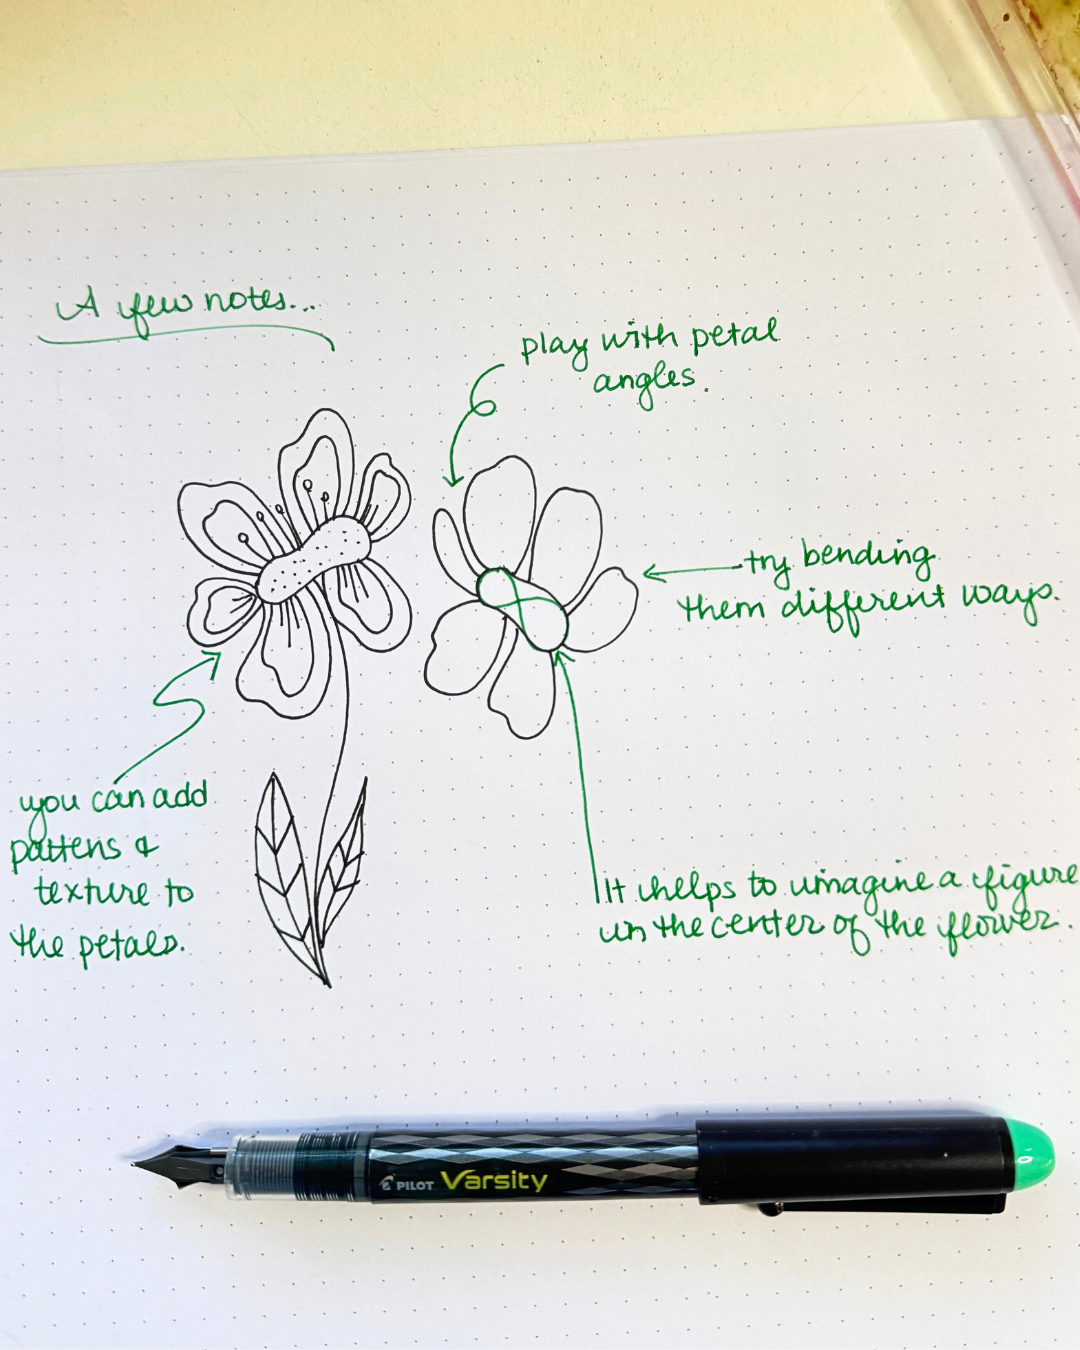 A few notes...
play with petal
angles.
try bending
them different ways.
you can add
pattens &
texture to
the petals.
It helps to imagine a figure
in the center of the flower.
PILOT Varsity